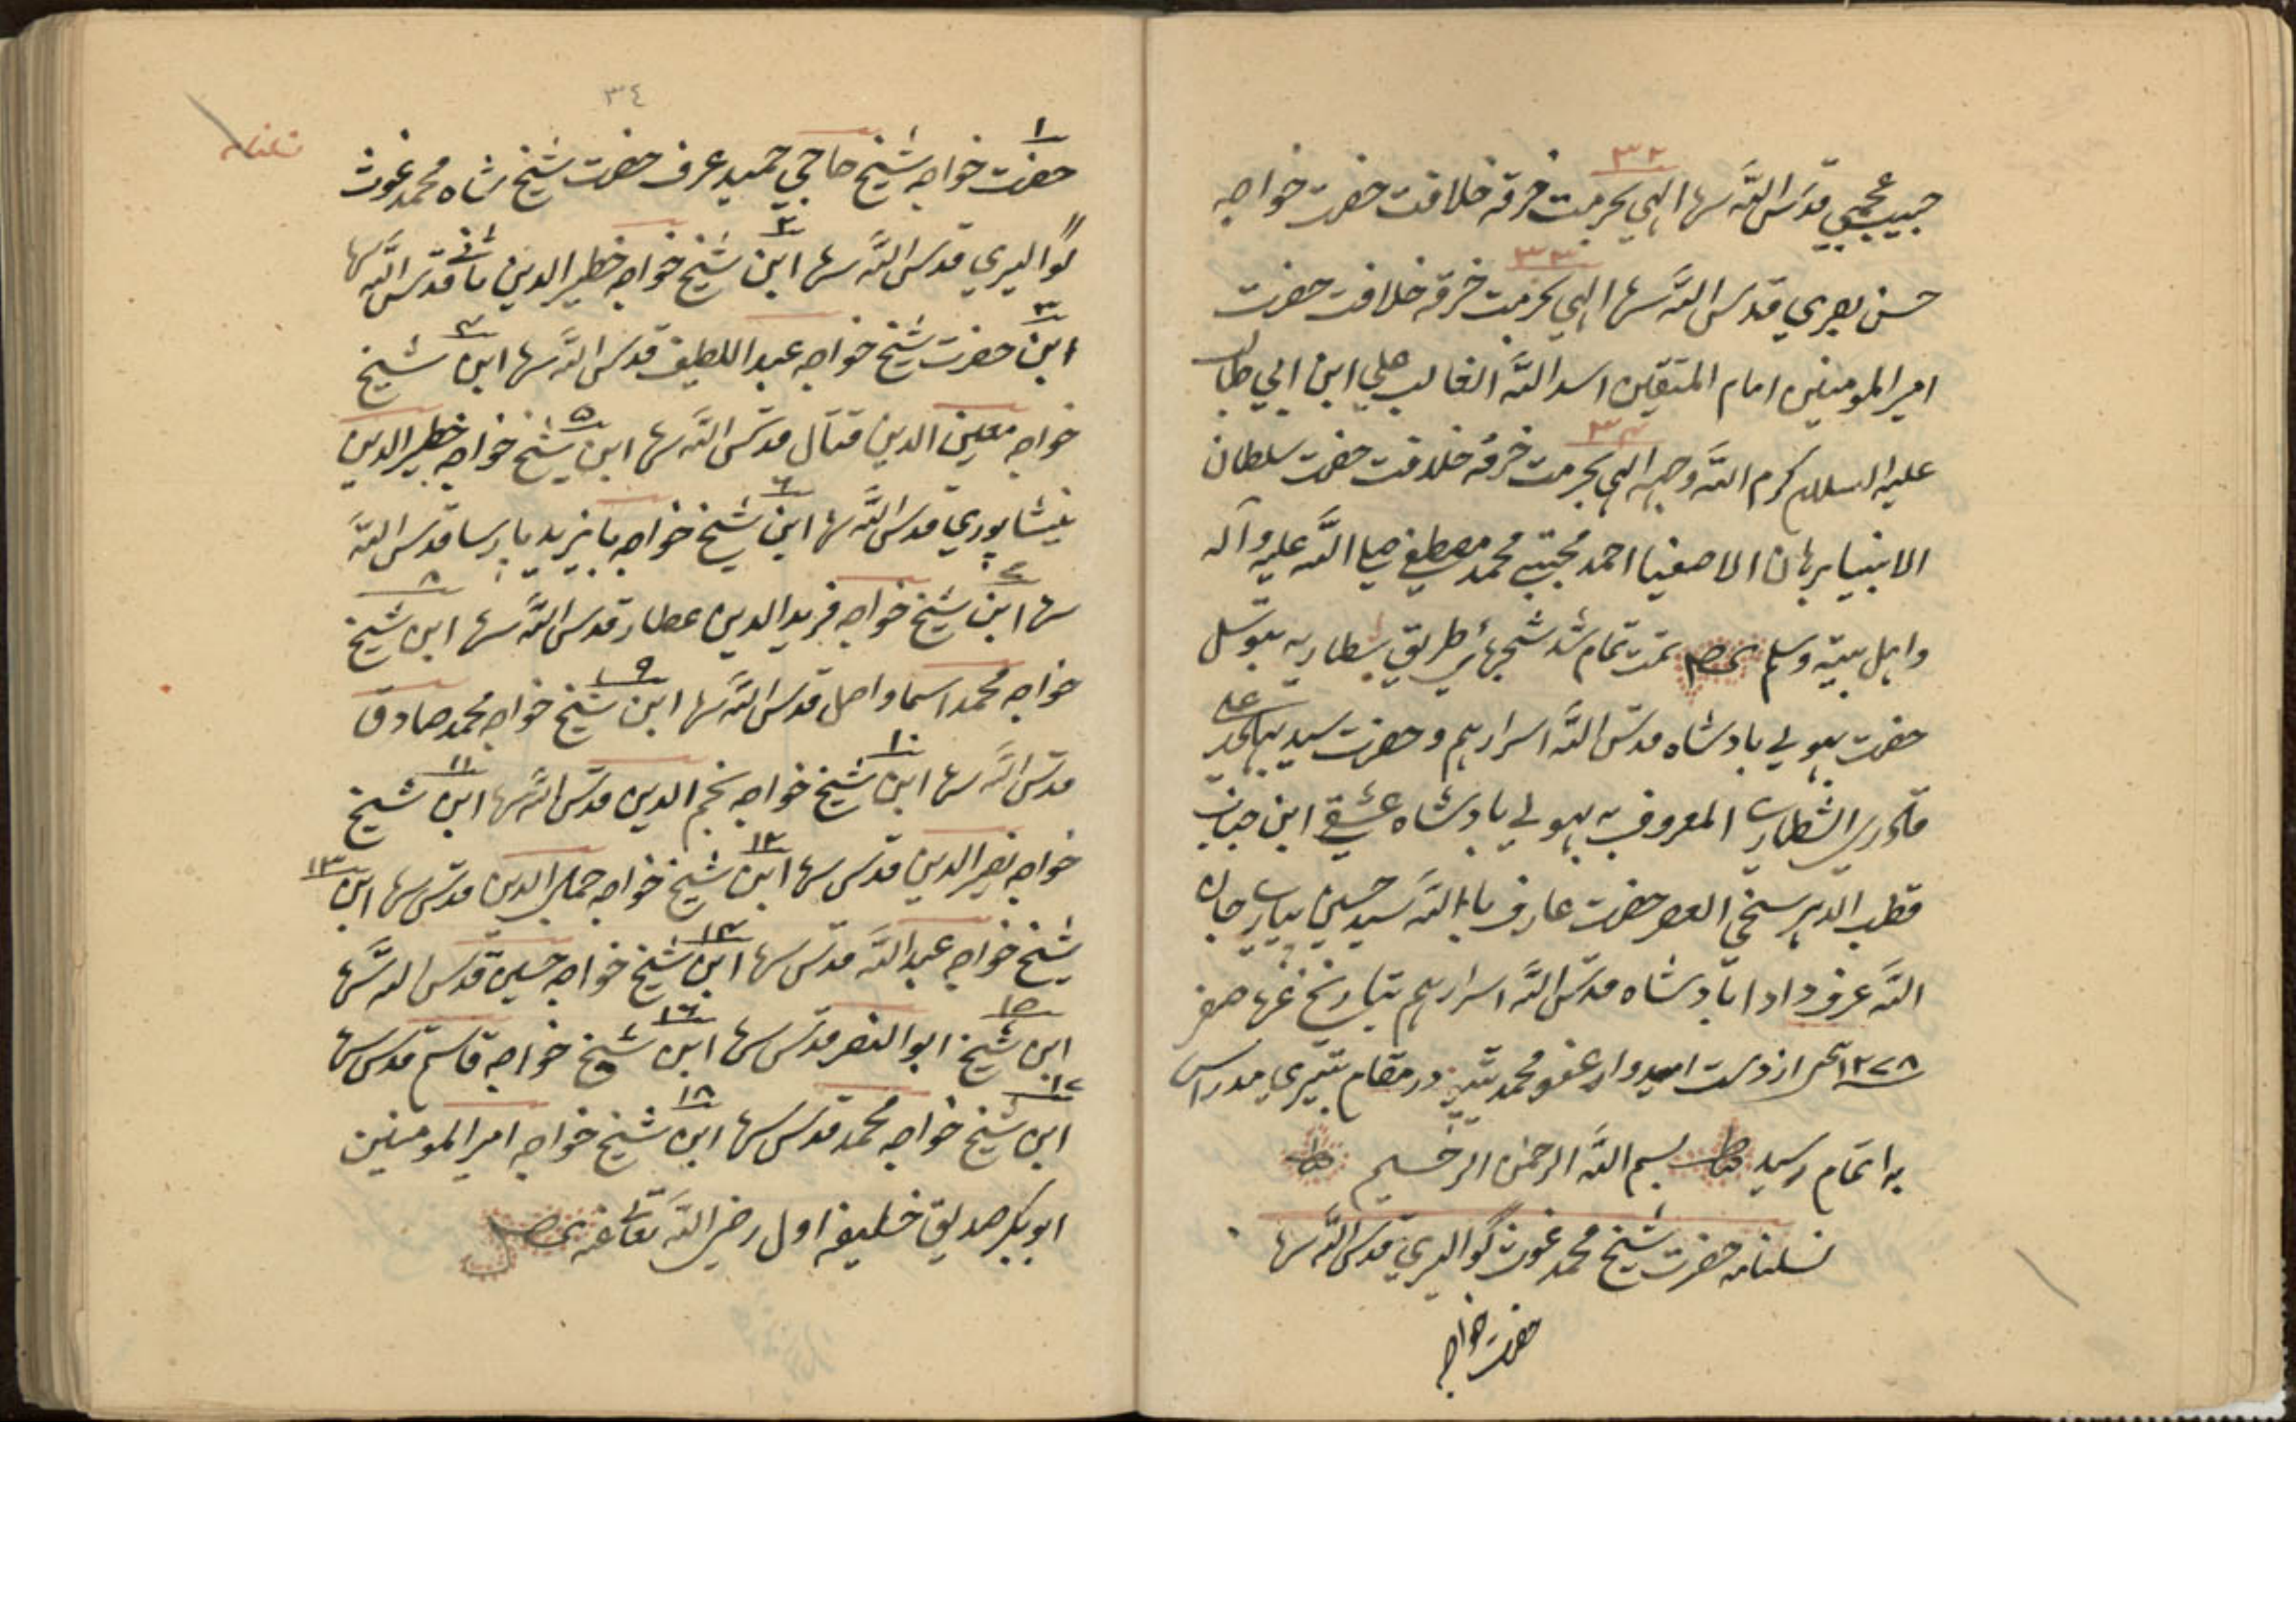 ۳۲
حبیب عجمی قدس الله سرها الهی بحرمت خرقه خلافت حضرت خواجه
۳۳
حسن بصری قدس الله سرها الهی بحرمت خرقه خلافت حضرت
امیر المومنین امام المتقین اسد الله الغالب علی ابن ابی طالب
۳۴
علیه السلام کرم الله وجهه الهی بحرمت خرقه خلافت حضرت سلطان
الانبیا برهان الاصفیا احمد مجتبی محمد مصطفی صلی الله علیه وآله
واهل بیته وسلم تمت تمام شد شجرهٔ طریق شطاریه بتوسل
حضرت بهولی بادشاه قدس الله اسرارهم وحضرت سید علی
قادری الشطاری المعروف به بهولی بادشاه عشقی ابن جناب
قطب الدهر سخی العصر حضرت عارف باالله سید حسین پیاری جان
الله عرف دادا بادشاه قدس الله اسرارهم بتاریخ غره صفر
۱۲۷۸ از دست امیدوار عفو محمد در مقام مدراس
به اتمام رسید بسم الله الرحمن الرحیم
نسلنامه حضرت شیخ محمد غوث گوالیری قدس الله سرها
حضرت خواجه
۳٤
۱
حضرت خواجه شیخ حاجی حمید عرف حضرت شیخ شاه محمد غوث
۲
گوالیری قدس الله سرها ابن شیخ خواجه خطیر الدین ثانی قدس الله سرها
۳ ۴
ابن حضرت شیخ خواجه عبد اللطیف قدس الله سرها ابن شیخ
۵
خواجه معین الدین قتال قدس الله سرها ابن شیخ خواجه خطیر الدین
۶
نیشاپوری قدس الله سرها ابن شیخ خواجه بایزید پارسا قدس الله
۷ ۸
سرها ابن شیخ خواجه فرید الدین عطار قدس الله سرها ابن شیخ
۹
خواجه محمد اسما واصل قدس الله سرها ابن شیخ خواجه محمد صادق
۱۰ ۱۱
قدس الله سرها ابن شیخ خواجه نجم الدین قدس الله سرها ابن شیخ
۱۲ ۱۳
خواجه نصیر الدین قدس سرها ابن شیخ خواجه جمال الدین قدس سرها ابن
۱۴
شیخ خواجه عبد الله قدس سرها ابن شیخ خواجه حسین قدس الله سرها
۱۵ ۱۶
ابن شیخ ابو النصر قدس سرها ابن شیخ خواجه قاسم قدس سرها
۱۷ ۱۸
ابن شیخ خواجه محمد قدس سرها ابن شیخ خواجه امیر المومنین
ابوبکر صدیق خلیفه اول رضی الله تعالی عنه